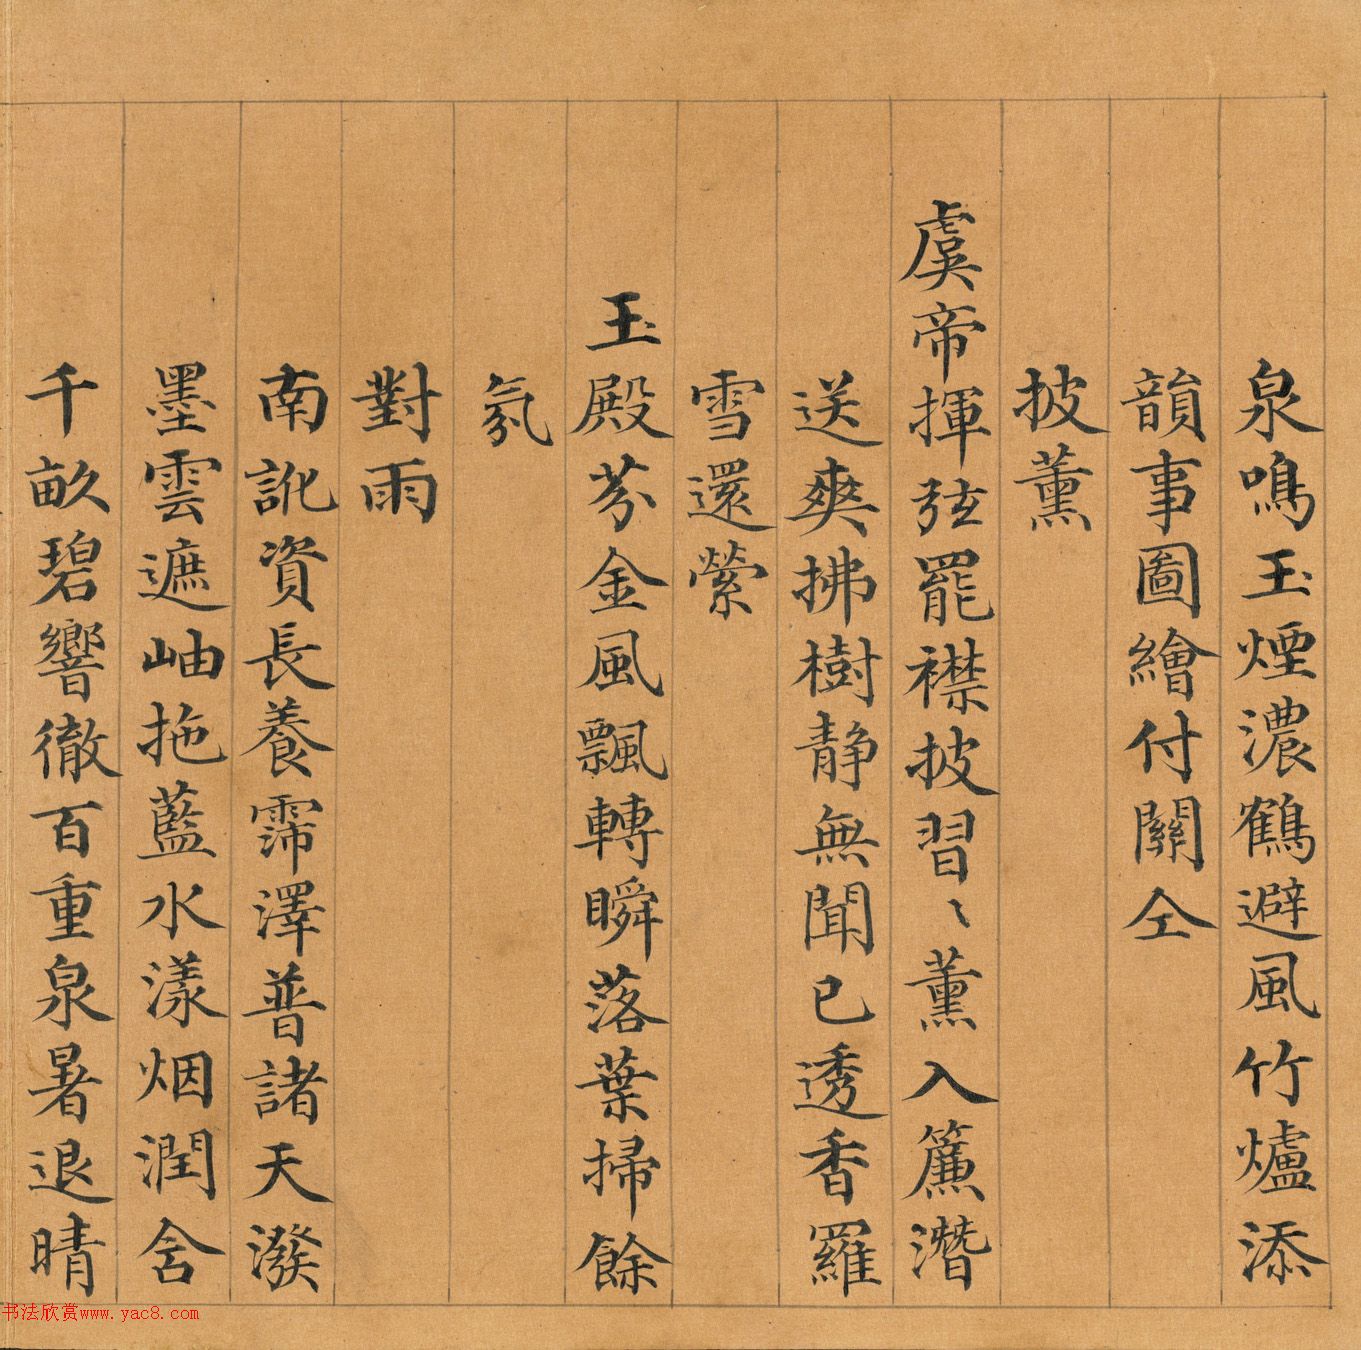 泉鳴玉煙濃鶴避風竹爐添
韻事圖繪付關仝
披薰
虞帝揮弦罷襟披習〻薰入簾潛
送爽拂樹静無聞已透香羅
雪還縈
玉殿芬金風飄轉瞬落葉掃餘
氛
對雨
南訛資長養霈澤普諸天潑
墨雲遮岫拖藍水漾烟潤含
千畝碧響徹百重泉暑退晴
书法欣赏www.yac8.com